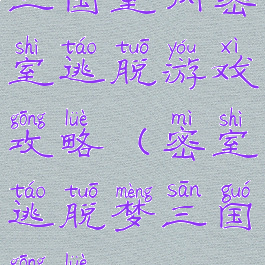 shì táo tuō yóu xì
室逃脱游戏
gōng lüè mì shì
攻略（密室
táo tuō mèng sān guó
逃脱梦三国
gōng lüè